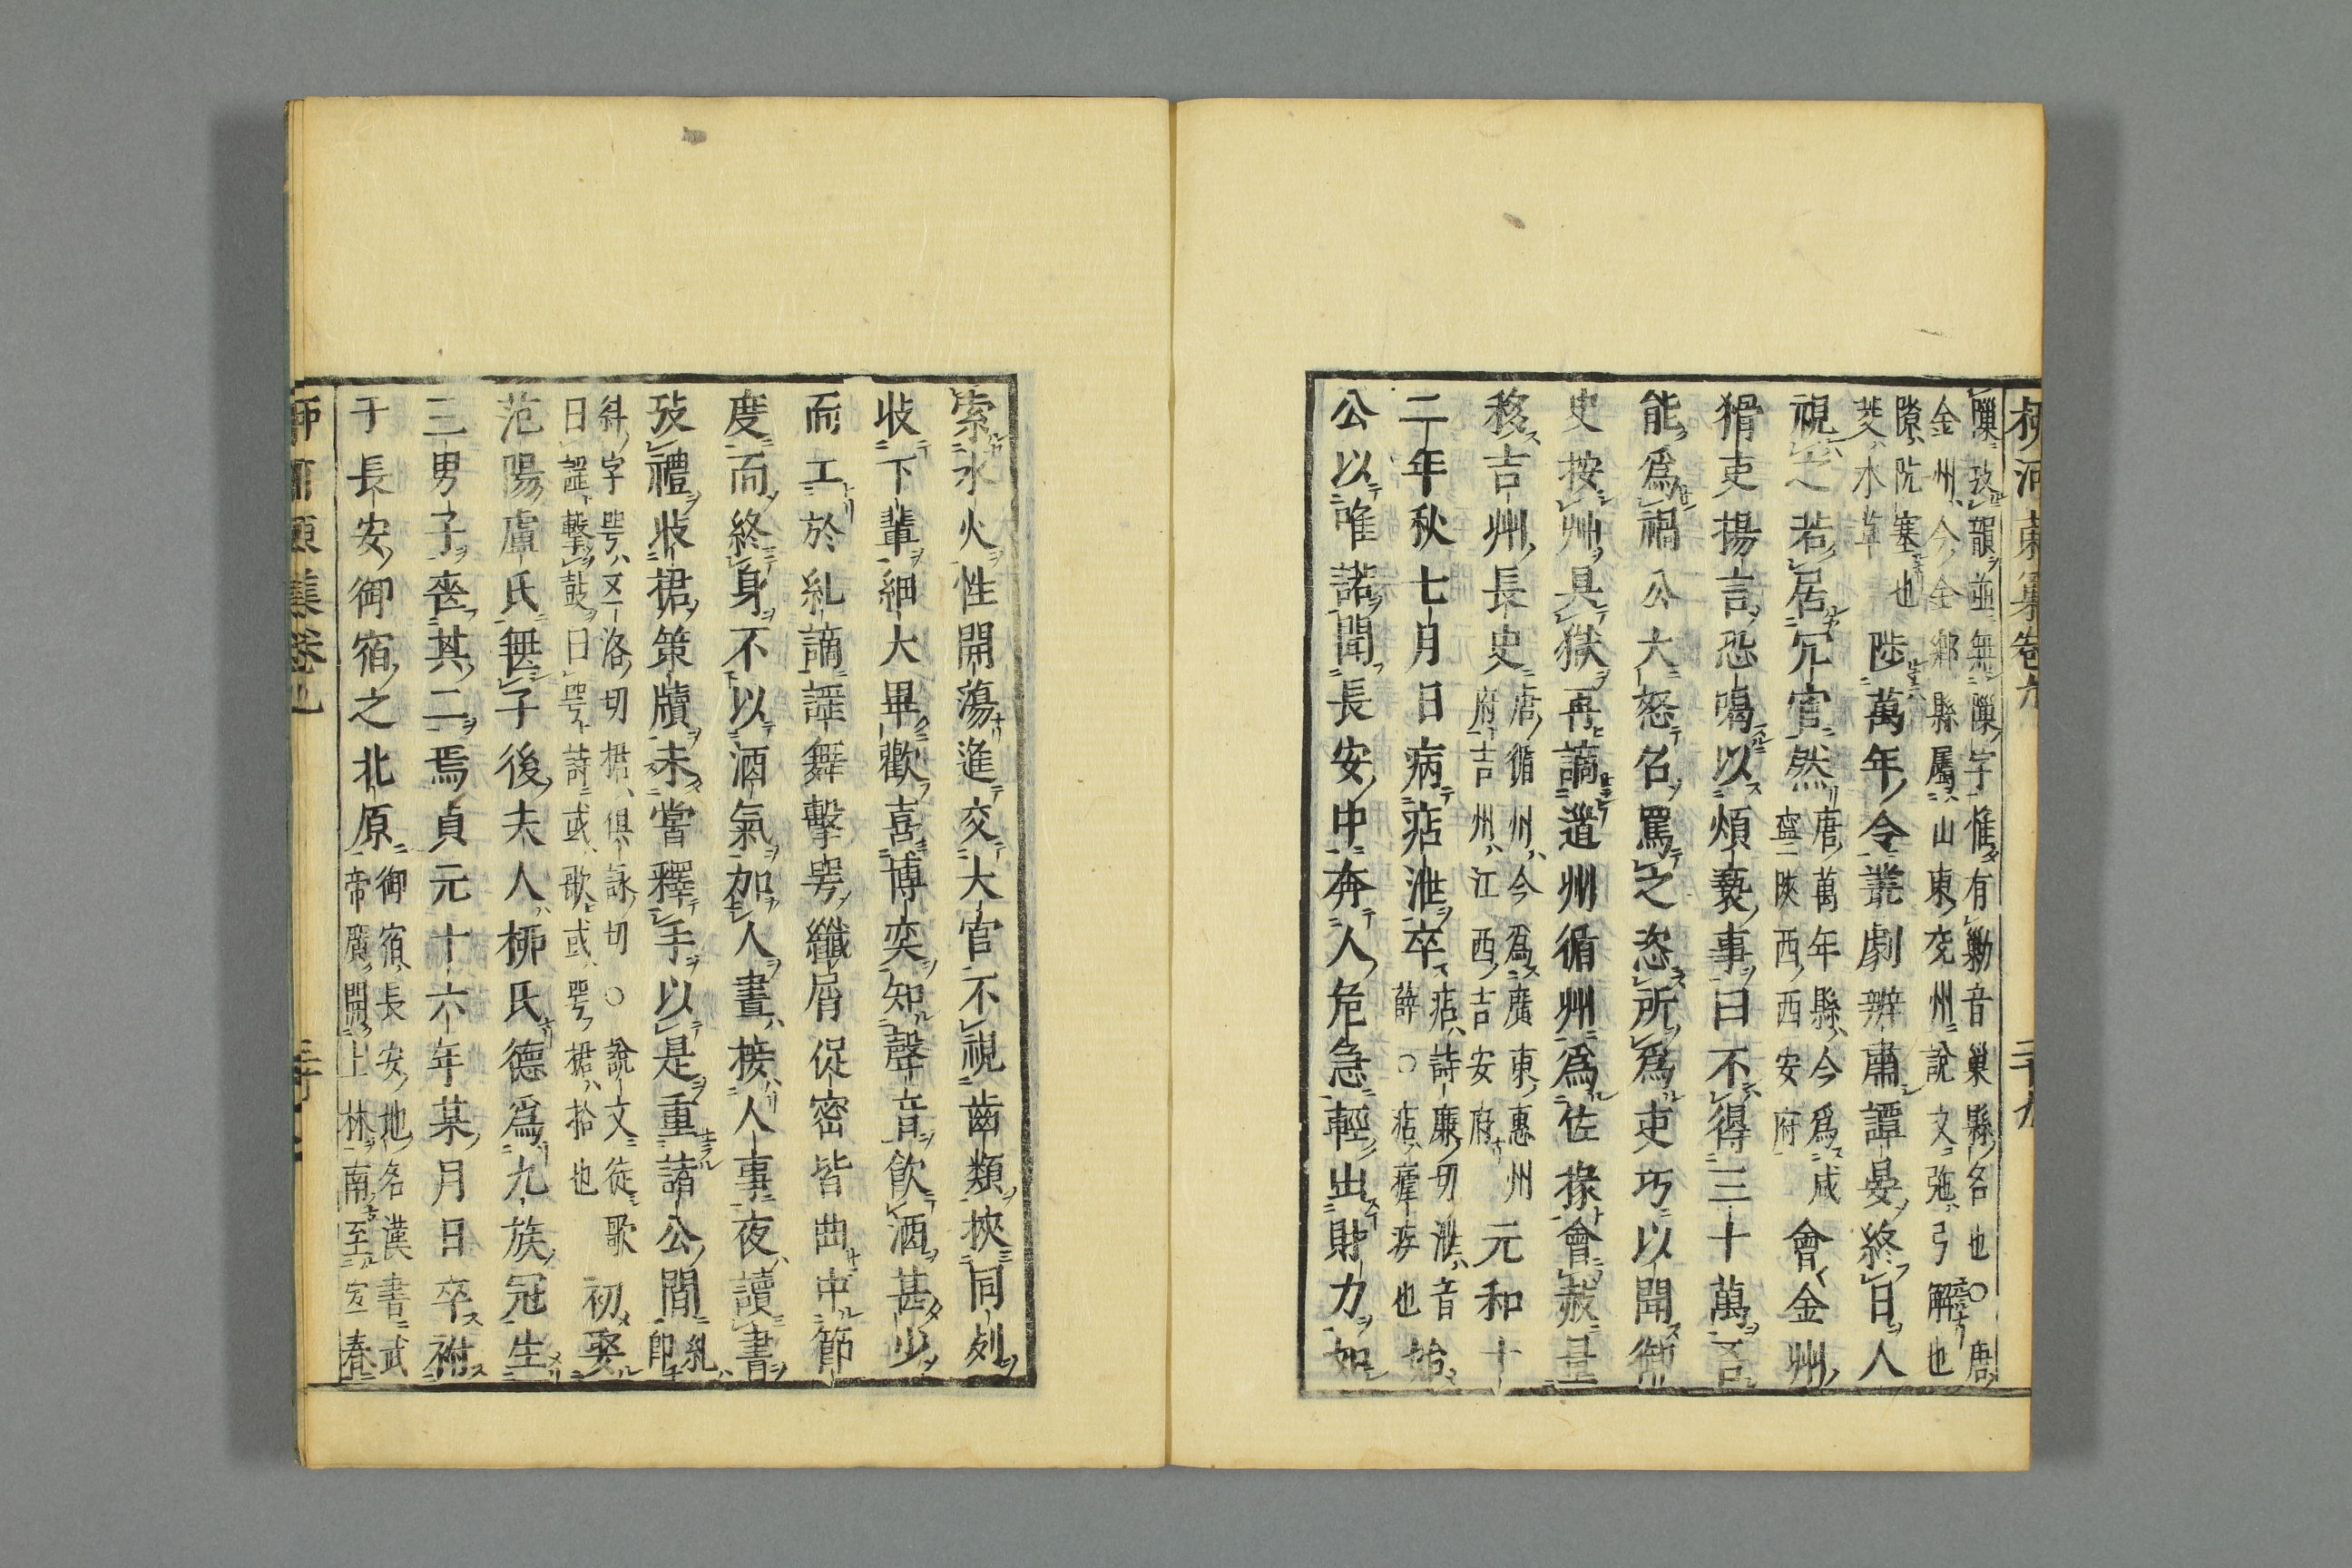 柳河東集卷九
二十九
隟攷韻並無隟字惟有勦音巢縣名也○唐
金州今金鄉縣屬山東兗州說文弛弓解也
隙阬塞也
茭水草
陟萬年令叢劇辦肅譚晏終日人
視之若居冗官然
唐萬年縣今爲咸
寧陝西西安府
會金州
猾吏揚言恐喝以煩褻事曰不得三十萬吾
能爲禍公大怒召罵之恣所爲吏巧以聞御
史按州具獄再謫道州循州爲佐掾會赦量
移吉州長史
唐循州今爲廣東惠州
府吉州江西吉安府
元和十
二年秋七月日病痁泄卒
痁詩廉切泄音
薛○痁瘧疾也
始
公以唯諾聞長安中奔人危急輕出財力如
索水火性開蕩進交大官不視齒類挾同列
收下輩細大畢歡喜博奕知聲音飮酒甚少
而工於糺謫謡舞擊咢纖屑促密皆曲中節
度而終身不以酒氣加人晝接人事夜讀書
攷禮收捃策牘未嘗釋手以是重諸公間
糺
卽
糾字咢五洛切捃俱詠切○說文徒歌
曰謡擊鼓曰咢詩或歌或咢捃拾也
初娶
范陽盧氏無子後夫人柳氏德爲九族冠生
三男子喪其二焉貞元十六年某月日卒祔
于長安御宿之北原
御宿長安地名漢書武
帝廣開上林南至宜春
柳河東集卷九